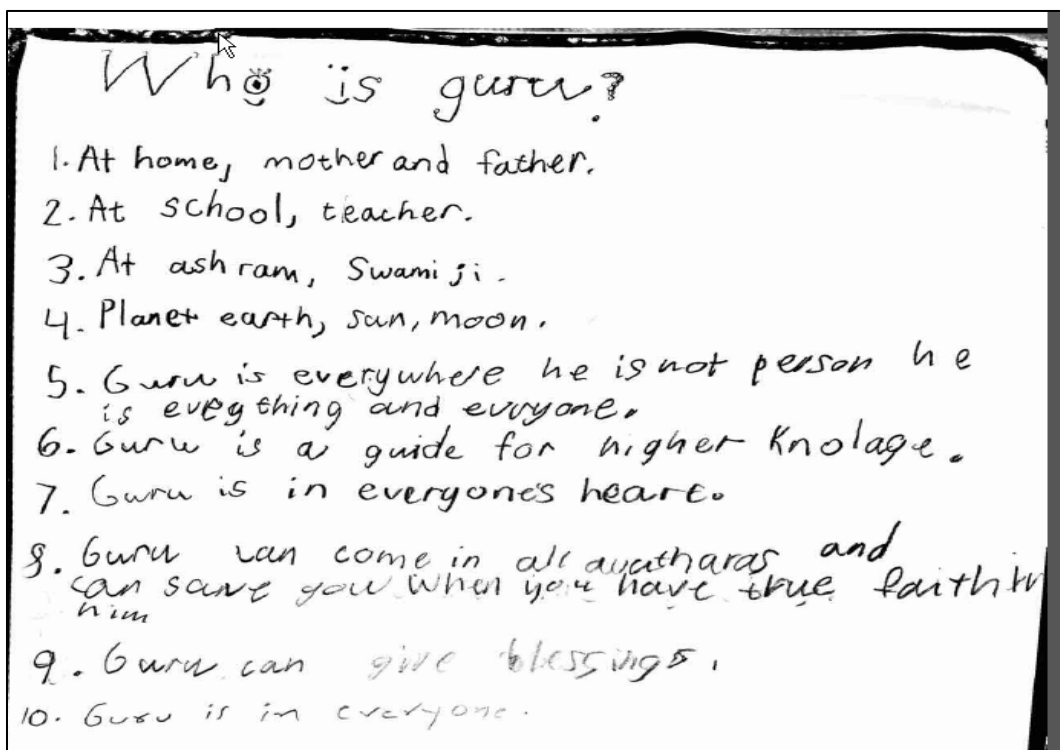 Who is guru?
1. At home, mother and father.
2. At school, teacher.
3. At ashram, Swamiji.
4. Planet earth, sun, moon.
5. Guru is everywhere he is not person he
is evegthing and evryone.
6. Guru is a guide for higher Knolage.
7. Guru is in everyone's heart.
8. Guru can come in all avatharas and
can save you when you have true faith in
him
9. Guru can give blessings.
10. Guru is in everyone.